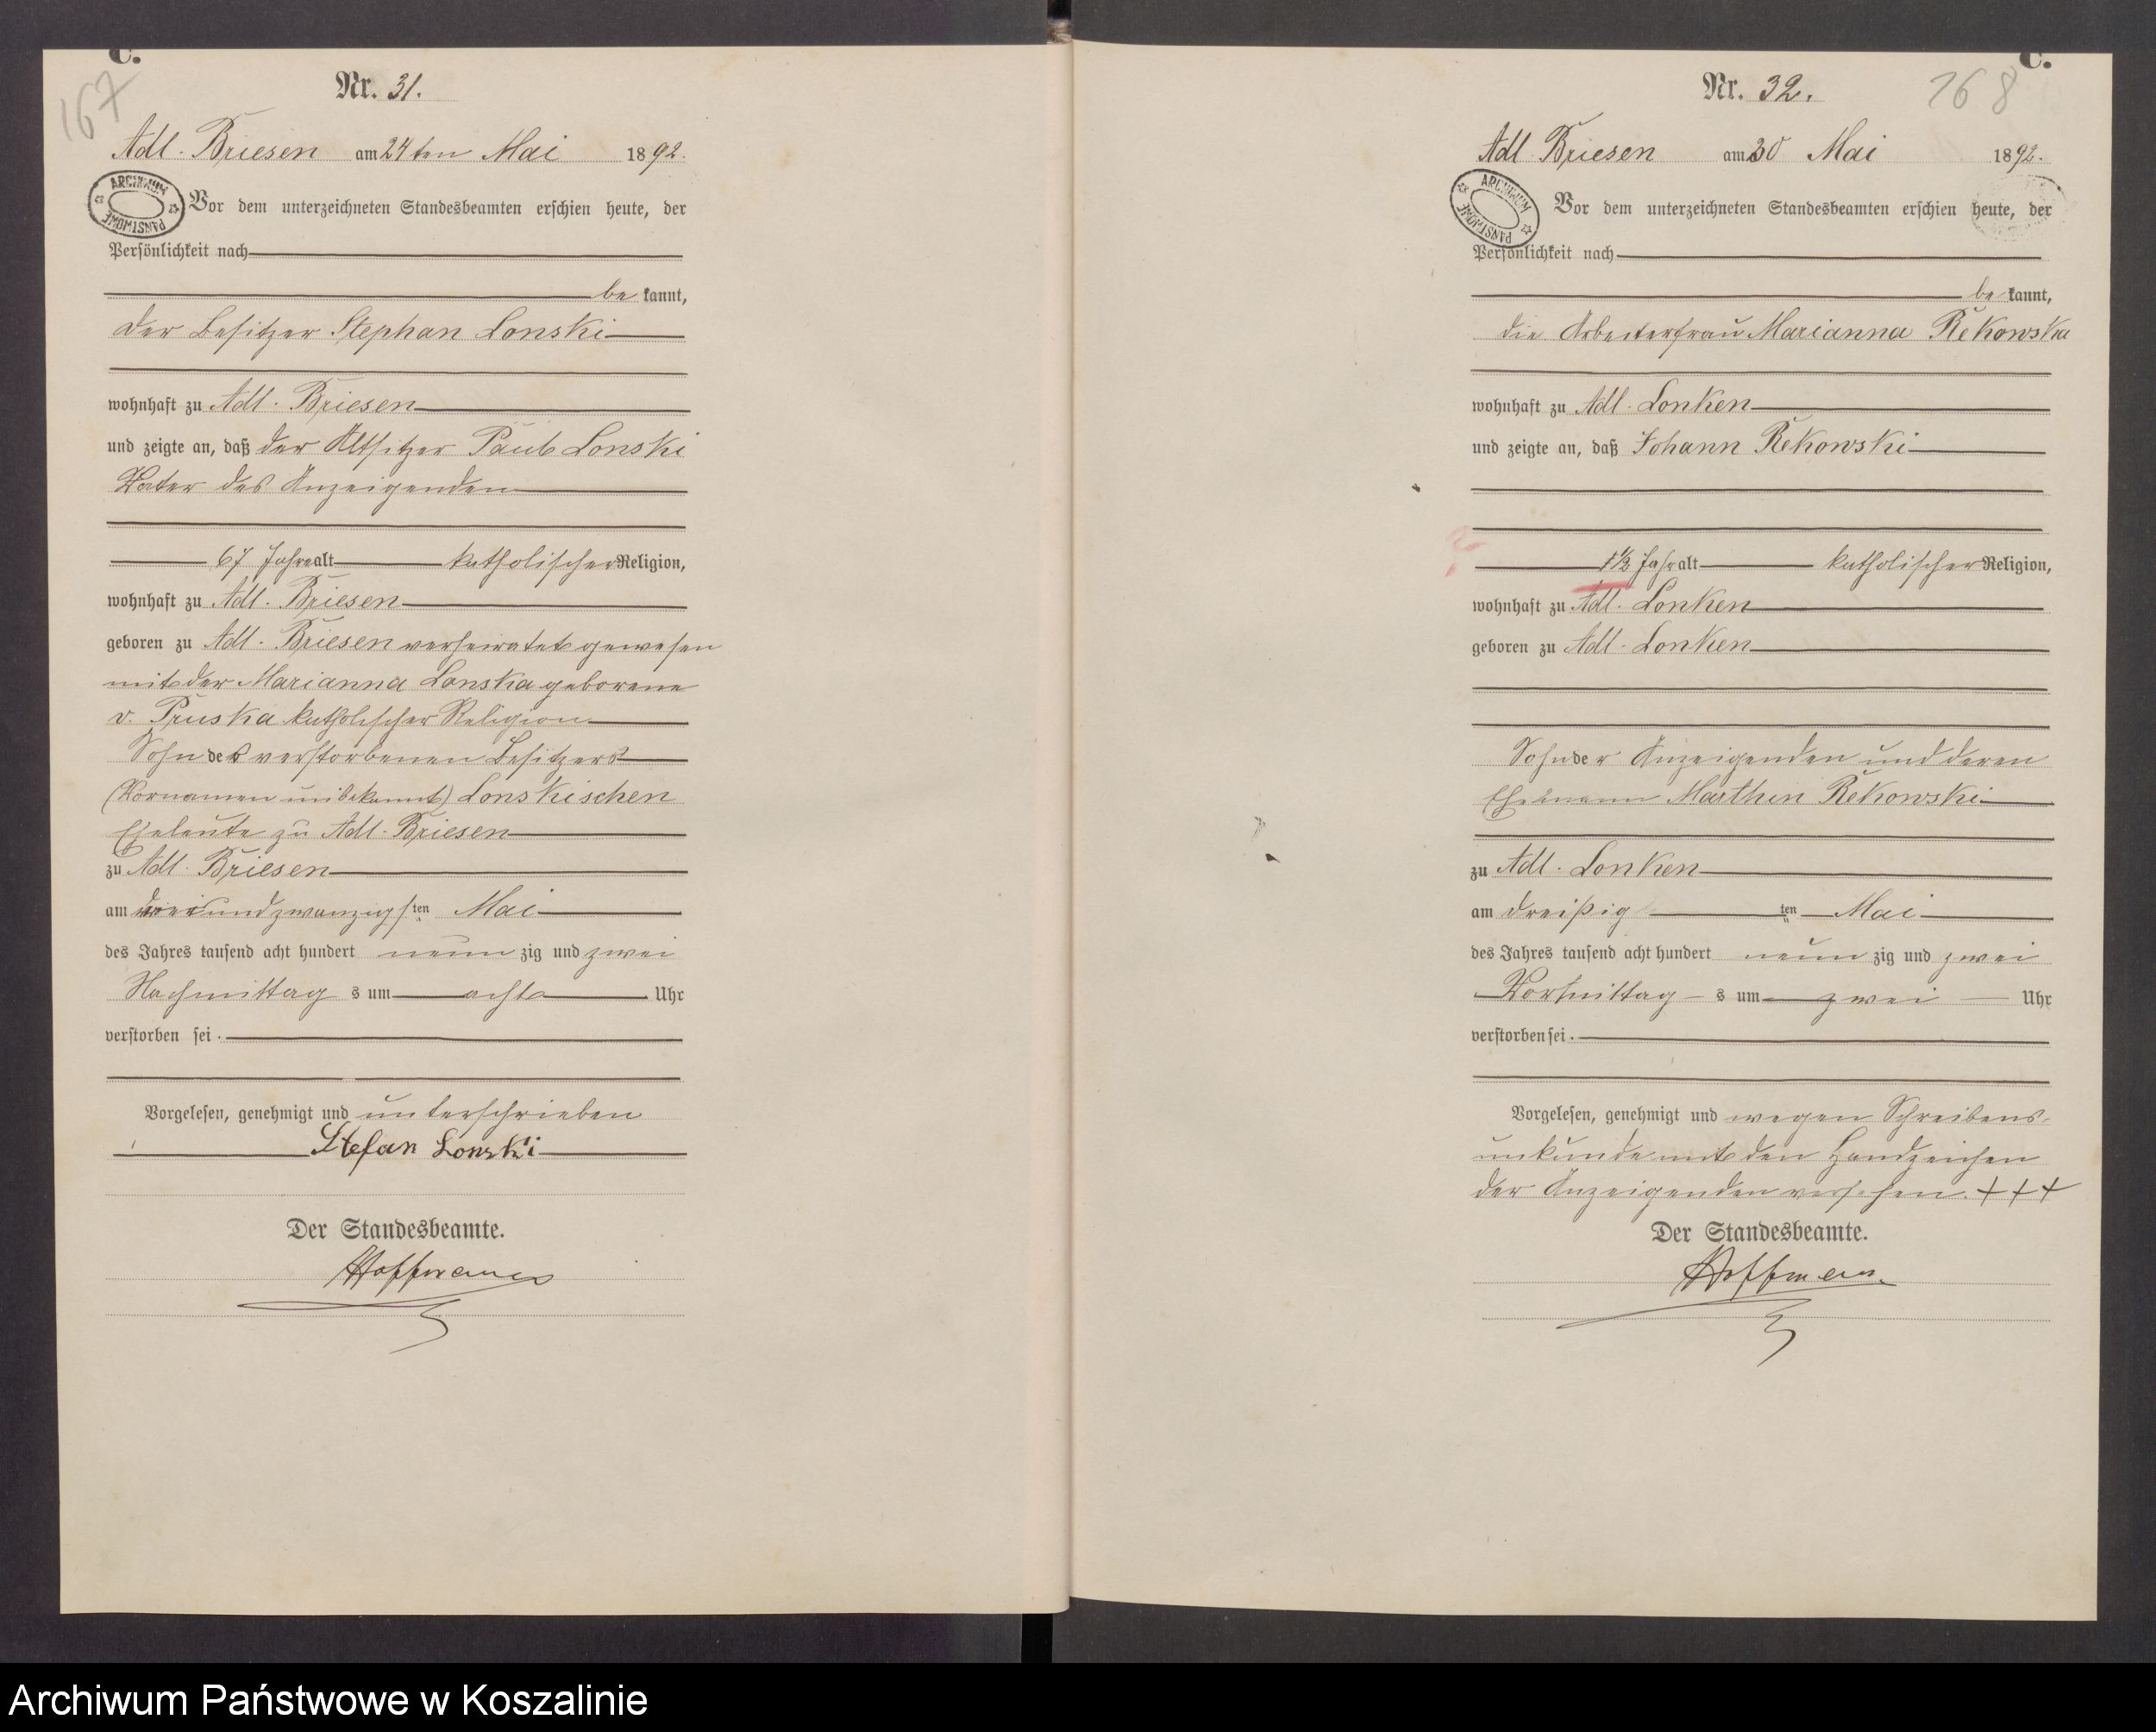 C.
167
Nr. 31.
Adl. Briesen am 24ten Mai 1892.
ARCHIWUM PAŃSTWOWE
Vor dem unterzeichneten Standesbeamten erschien heute, der
Persönlichkeit nach
be kannt,
der Besitzer Stephan Lonski
wohnhaft zu Adl. Briesen
und zeigte an, daß der Altsitzer Paul Lonski
Vater des Anzeigenden
67 Jahre alt katholischer Religion,
wohnhaft zu Adl. Briesen
geboren zu Adl. Briesen verheiratet gewesen
mit der Marianna Lonska geborene
v. Pruska katholischer Religion
Sohn der verstorbenen Besitzers
(Vornamen unbekannt) Lonskischen
Eheleute zu Adl. Briesen
zu Adl. Briesen
am dreiundzwanzigsten Mai
des Jahres tausend acht hundert neun zig und zwei
Nachmittag s um acht Uhr
verstorben sei.
Vorgelesen, genehmigt und unterschrieben
Stefan Lonski
Der Standesbeamte.
Hoffmann
C.
168
Nr. 32.
Adl. Briesen am 30 Mai 1892.
ARCHIWUM PAŃSTWOWE
Vor dem unterzeichneten Standesbeamten erschien heute, der
Persönlichkeit nach
be kannt,
die Arbeiterfrau Marianna Rekowska
wohnhaft zu Adl. Lonken
und zeigte an, daß Johann Rekowski
1½ Jahr alt katholischer Religion,
wohnhaft zu Adl. Lonken
geboren zu Adl. Lonken
Sohn der Anzeigenden und deren
Ehemann Marthin Rekowski
zu Adl. Lonken
am dreißig ten Mai
des Jahres tausend acht hundert neun zig und zwei
Vormittag s um zwei Uhr
verstorben sei.
Vorgelesen, genehmigt und wegen Schreibens-
unkunde mit den Handzeichen
der Anzeigenden versehen. + + +
Der Standesbeamte.
Hoffmann
Archiwum Państwowe w Koszalinie